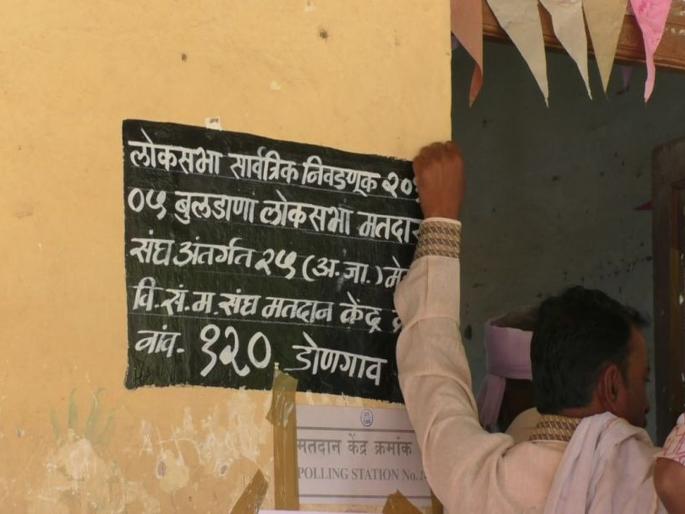 लोकसभा सार्वत्रिक निवडणूक २०
०५ बुलडाणा लोकसभा मतदार
संघ अंतर्गत २५ (अ.जा.) मे
वि.सं.म.संघ मतदान केंद्र
नांव- १२० डोणगाव
मतदान केंद्र क्रमांक
POLLING STATION No.